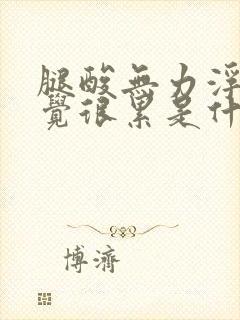 腿酸無力浮
覺很累是什
博濟